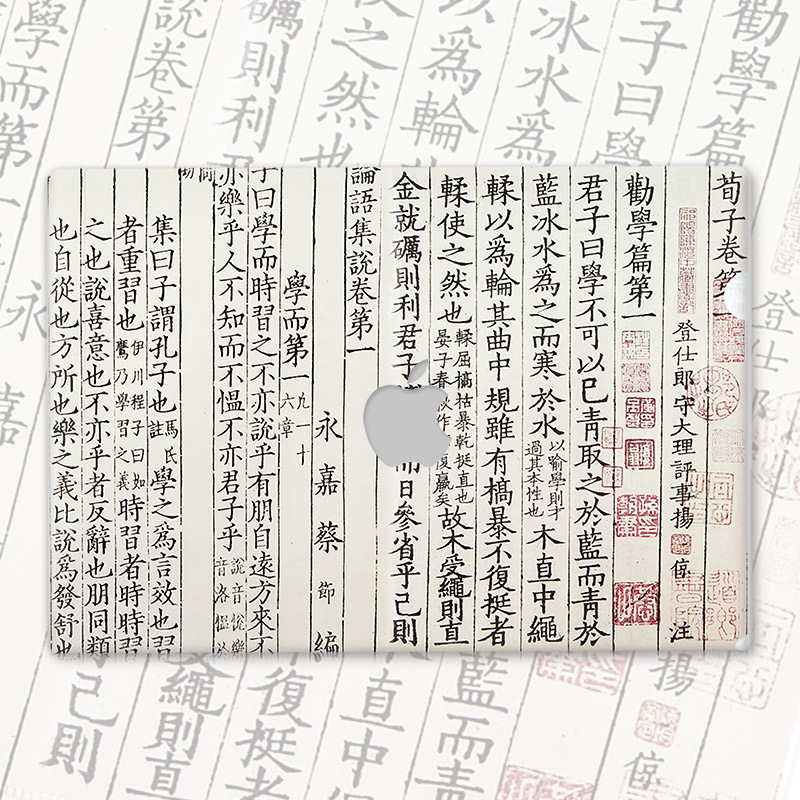 荀子卷第一
登仕郎守大理評事揚倞注
勸學篇第一
君子曰學不可以已青取之於藍而青於
藍冰水爲之而寒於水以喻學則才過其本性也木直中繩
輮以爲輪其曲中規雖有槁暴不復挺者
輮使之然也輮屈槁枯暴乾挺直也晏子春作復羸矣故木受繩則直
金就礪則利君子而日參省乎己則
論語集說卷第一
永嘉蔡節編
學而第一凡一十六章
子曰學而時習之不亦說乎有朋自遠方來不
亦樂乎人不知而不慍不亦君子乎說音悅樂音洛慍於
集曰子謂孔子也馬氏註學之爲言效也習
者重習也伊川程子曰如鷹乃學習之義時習者時時習
之也說喜意也不亦乎者反辭也朋同類
也自從也方所也樂之義比說爲發舒也